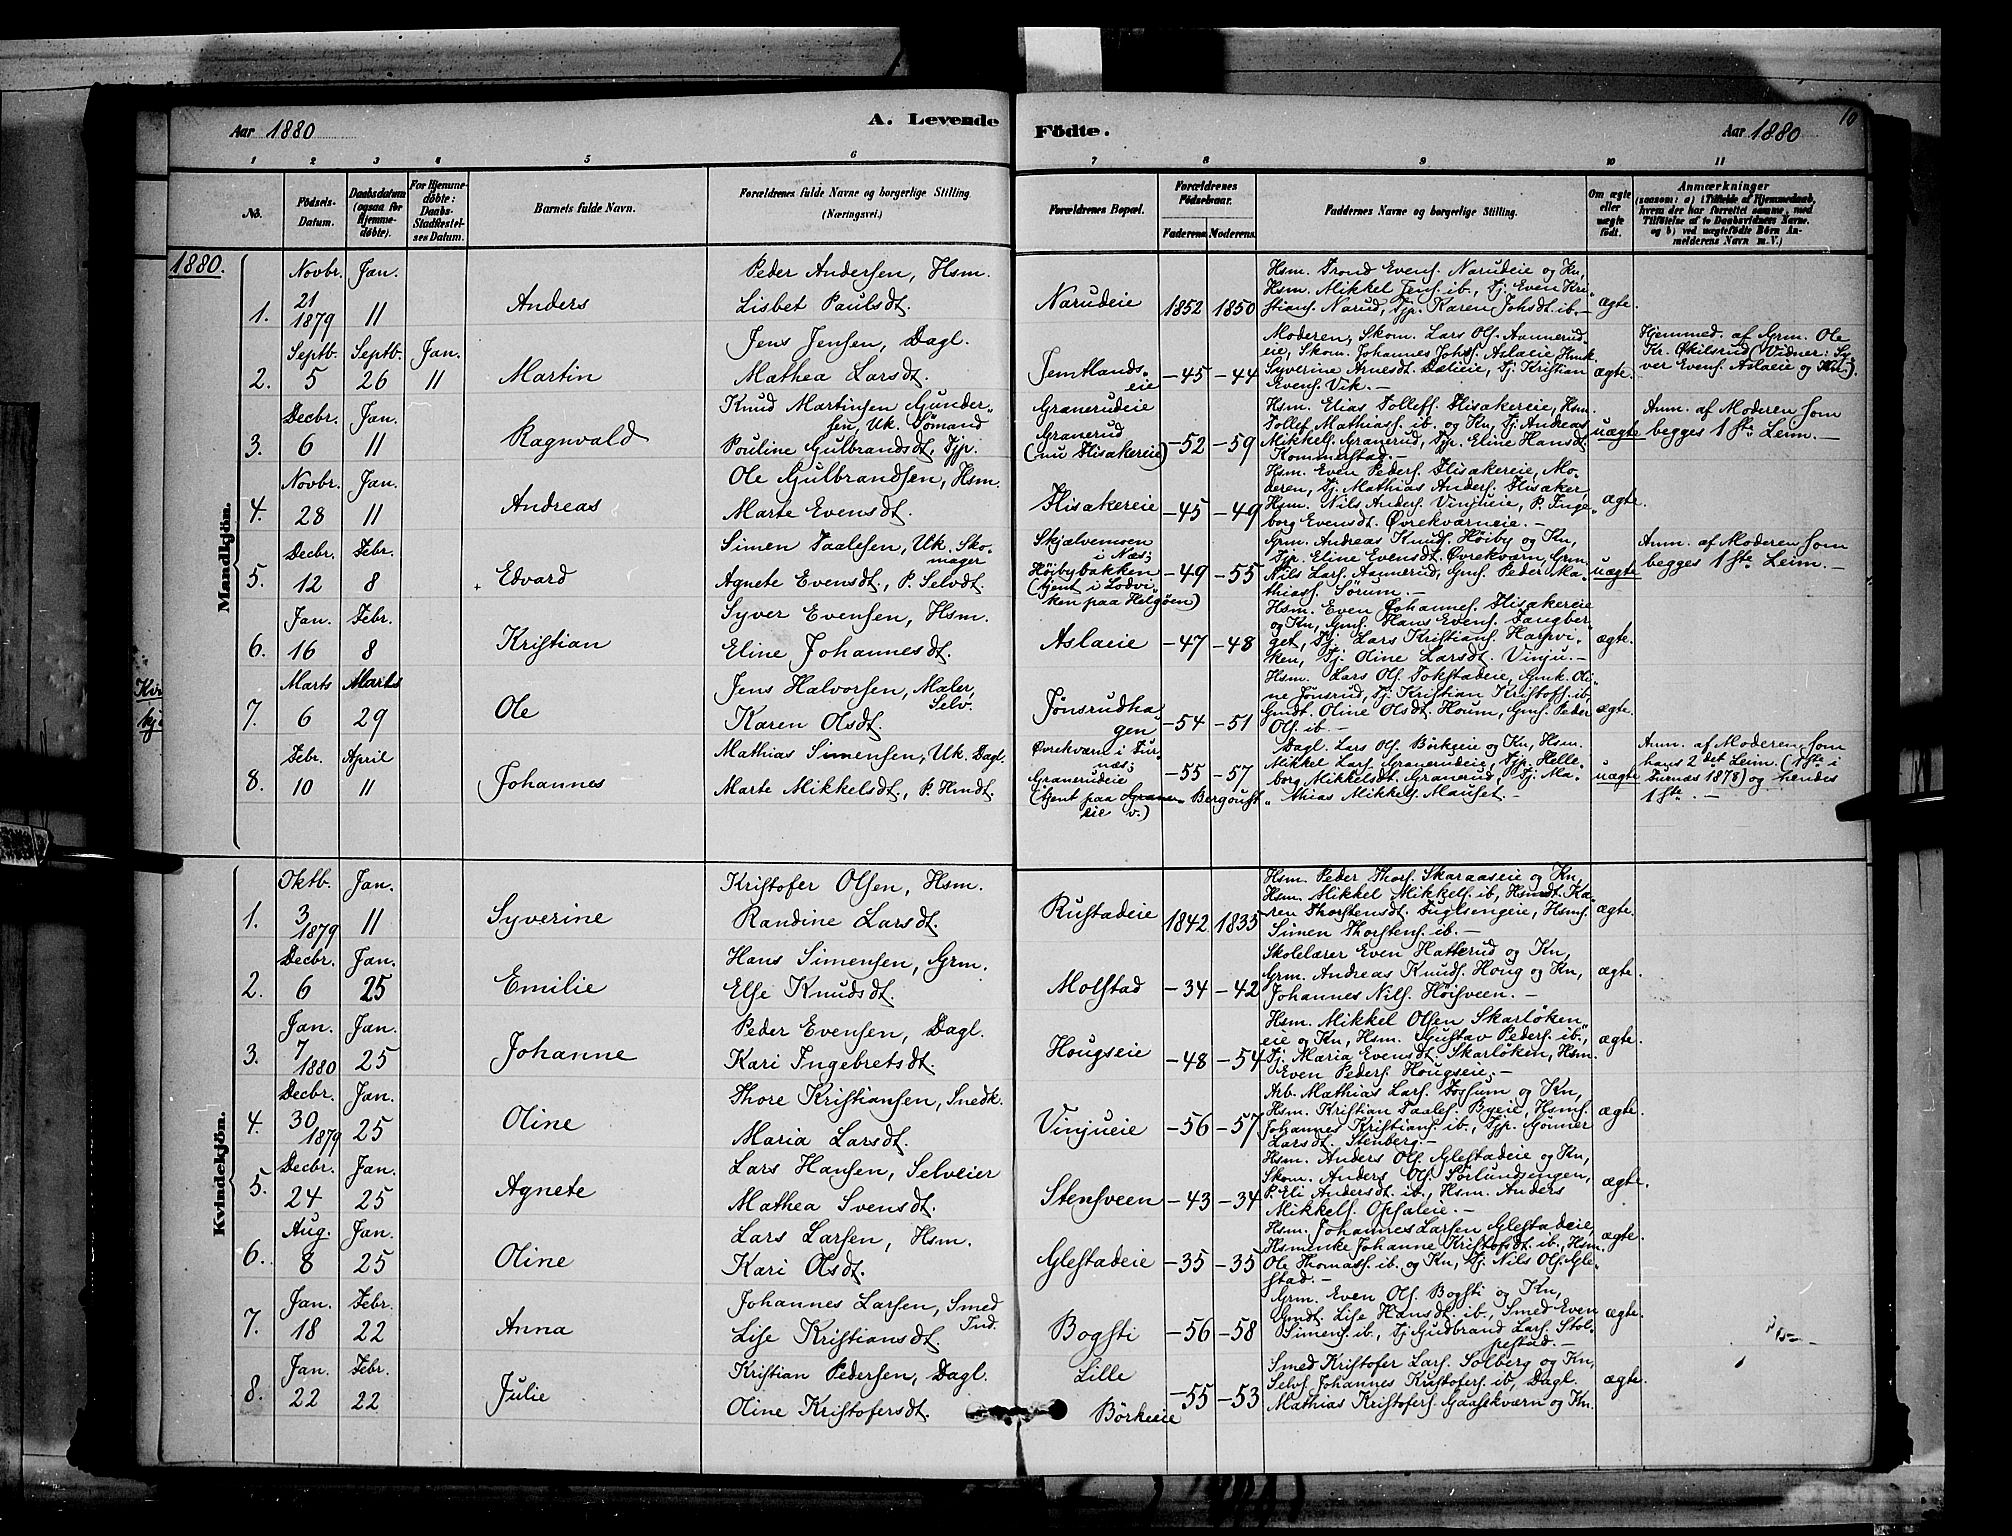 10
Aar 1880
A. Levende
Födte.
Aar 1880
1 2 3 4 5 6 7 8 9 10 11
No.
Födsels-
Datum.
Daabsdatum
(ogsaa for
Hjemme-
döbte).
For Hjemme-
döbte:
Daabs-
Stadfæstel-
ses Datum.
Barnets fulde Navn.
Forældrenes fulde Navne og borgerlige Stilling.
(Næringsvei.)
Forældrenes Bopæl.
Forældrenes
Födselsaar.
Faderens. Moderens.
Faddernes Navne og borgerlige Stilling.
Om ægte
eller
uægte
født.
Anmærkninger
(saasom: a) i Tilfælde af Hjemmedaab,
hvem der har forrettet samme, med
Tilföielse af to Daabsvidners Navne,
og b) ved uægtefödte Börn An-
melderens Navn m. V.)
1880.
Mandkjön.
1.
Novbr.
21
1879
Jan.
11
Anders
Peder Andersen, Hsm.
Lisbet Paulsdt.
Narudeie
1852 1850
Hsm. Trond Evens. Narudeie og Kn,
Hsm. Mikkel Jens. ib., Tj. Even Kri-
stians. Narud, Tjp. Karen Johsdt. ib. -
ægte.
2.
Septb.
5
Septb.
26
Jan.
11
Martin
Jens Jensen, Dagl.
Mathea Larsdt.
Jemtlands-
eie
-45 -44
Moderen, Skom. Lars Ols. Aannerud-
eie, Skom. Johannes Johs. Aslaeie, Hmk.
Syverine Arnesdt. Dælieie, Tj. Kristian
Evens. Vik. -
ægte.
Hjemmed. af Grm. Ole
Kr. Økilsrud (Vidner: Sy-
ver Evens. Aslaeie og Hu).
3.
Decbr.
6
Jan.
11
Ragnvald
Knud Martinsen Gunder-
sen, Uk. Sömand
Pouline Gulbrandsdt., Tjp.
Granerudeie
Granerud
(nu Flisakereie)
-52 -59
Hsm. Elias Tollefs. Flisakereie, Hsm.
Tollef Mathiass. ib. og Kn, Tj. Andreas
Mikkels. Granerud, Tjp. Eline Hansdt.
Kommerstad. -
uægte
Anm. af Moderen som
begges 1ste Leierm. -
4.
Novbr.
28
Jan.
11
Andreas
Ole Gulbrandsen, Hsm.
Marte Evensdt.
Flisakereie
-45 -49
Hsm. Even Peders. Flisakereie, Mo-
deren, Tj. Mathias Anders. Flisaker,
Hsm. Nils Anders. Vinjueie, P. Inge-
borg Evensdt. Øvrekværneie. -
ægte.
5.
Decbr.
12
Febr.
8
Edvard
Simen Taalesen, Uk. Sko-
mager
Agnete Evensdt., P. Selvdt.
Skjælvemoen
i Næs;
Höibybakken
(tjent i Lodvi-
ken paa Helgöen)
-49 -55
Grm. Andreas Knuds. Höiby og Kn,
Tjp. Eline Evensdt. Øvrekværn, Grm.
Nils Lars. Aannerud, Gms. Peder Ma-
thiass. Sörum. -
uægte
Anm. af Moderen som
begges 1ste Leierm. -
6.
Jan.
16
Febr.
8
Kristian
Syver Evensen, Hsm.
Eline Johannesdt.
Aslaeie
-47 -48
Hsm. Even Johannes. Flisakereie
og Kn, Gms. Hans Evens. Taugber-
get, Tj. Lars Kristians. Harsvi-
ken, Tj. Oline Larsdt. Vinju. -
ægte.
7.
Marts
6
Marts
29
Ole
Jens Halvorsen, Maler,
Selv.
Karen Olsdt.
Jönsrudha-
gen
-54 -51
Hsm. Lars Ols. Tokstadeie, Gmk. Oli-
ne Jönsrud, Tj. Kristian Kristoffs. ib.,
Gmdt. Oline Olsdt. Houm, Gms. Peder
Ols. ib. -
ægte.
8.
Febr.
10
April
11
Johannes
Mathias Simensen, Uk. Dagl.
Marte Mikkelsdt., P. Hmdt.
Øvrekværn i Fur-
næs;
Granerudeie
(tjent paa Bergoust-
eie v.)
-55 -57
Dagl. Lars Ols. Börkeeie og Kn, Hsm.
Mikkel Lars. Granerudeie, Tjp. Helle-
borg Mikkelsdt. Granerud, Tj. Ma-
thias Mikkels. Mauset. -
uægte
Anm. af Moderen som
hans 2det Leierm. (1ste i
Furnæs 1878) og hendes
1ste. -
Kvindekjön.
1.
Oktb.
3
1879
Jan.
11
Syverine
Kristofer Olsen, Hsm.
Randine Larsdt.
Rustadeie
1842 1835
Hsm. Peder Thors. Skaraaseie og Kn,
Hsm. Mikkel Mikkels. ib., Hsmdt. Ka-
ren Thorstensdt. Fuglsengeie, Hsms.
Simen Thorstens. ib. -
ægte.
2.
Decbr.
6
Jan.
25
Emilie
Hans Simensen, Grm.
Else Knudsdt.
Molstad
-34 -42
Skolelærer Even Hatterud og Kn,
Grm. Andreas Knuds. Houg og Kn,
Johannes Nils. Höisveen. -
ægte.
3.
Jan.
7
1880
Jan.
25
Johanne
Peder Evensen, Dagl.
Kari Ingebretsdt.
Hougseie
-48 -54
Hsm. Mikkel Olsen Skarlöken-
eie og Kn, Hsm. Gustav Peders. ib.,
Tj. Maria Evensdt. Skarlöken, Hsm.
Even Peders. Hougseie. -
ægte.
4.
Decbr.
30
1879
Jan.
25
Oline
Thore Kristiansen, Snedk.
Maria Larsdt.
Vinjueie
-56 -57
Arb. Mathias Lars. Fossum og Kn,
Hsm. Kristian Taales. Byeie, Hsms.
Johannes Kristians. ib., Tjp. Gönner
Larsdt. Stenberg -
ægte.
5.
Decbr.
24
Jan.
25
Agnete
Lars Hansen, Selveier
Mathea Svensdt.
Stensveen
-43 -34
Hsm. Anders Ols. Glestadeie og Kn,
Skom. Anders Ols. Sörlundsengen,
P. Eli Andersdt. ib., Hsm. Anders
Mikkels. Opsaleie. -
ægte.
6.
Aug.
8
Jan.
25
Oline
Lars Larsen, Hsm.
Kari Olsdt.
Glestadeie
-35 -35
Hsm. Johannes Larsen Glestadeie,
Hsmenke Johanne Kristofsdt. ib., Hsm.
Ole Thomass. ib. og Kn, Tj. Nils Ols. Gle-
stad. -
ægte.
7.
Jan.
18
Febr.
22
Anna
Johannes Larsen, Smed
Ind.
Lise Kristiansdt
Bogsti
-56 -58
Grm. Even Ols. Bogsti og Kn,
Gmdt. Lise Hansdt. ib., Smed Even
Simens. ib., Tj. Gudbrand Lars. Stol-
pestad. -
ægte.
8.
Jan.
22
Febr.
22
Julie
Kristian Pedersen, Dagl.
Oline Kristofersdt.
Lille
Börkeeie
-55 -53
Smed Kristofer Lars. Solberg og Kn,
Selvs. Johannes Kristofers. ib., Dagl.
Mathias Kristofers. Gaasekværn og Kn.
ægte.